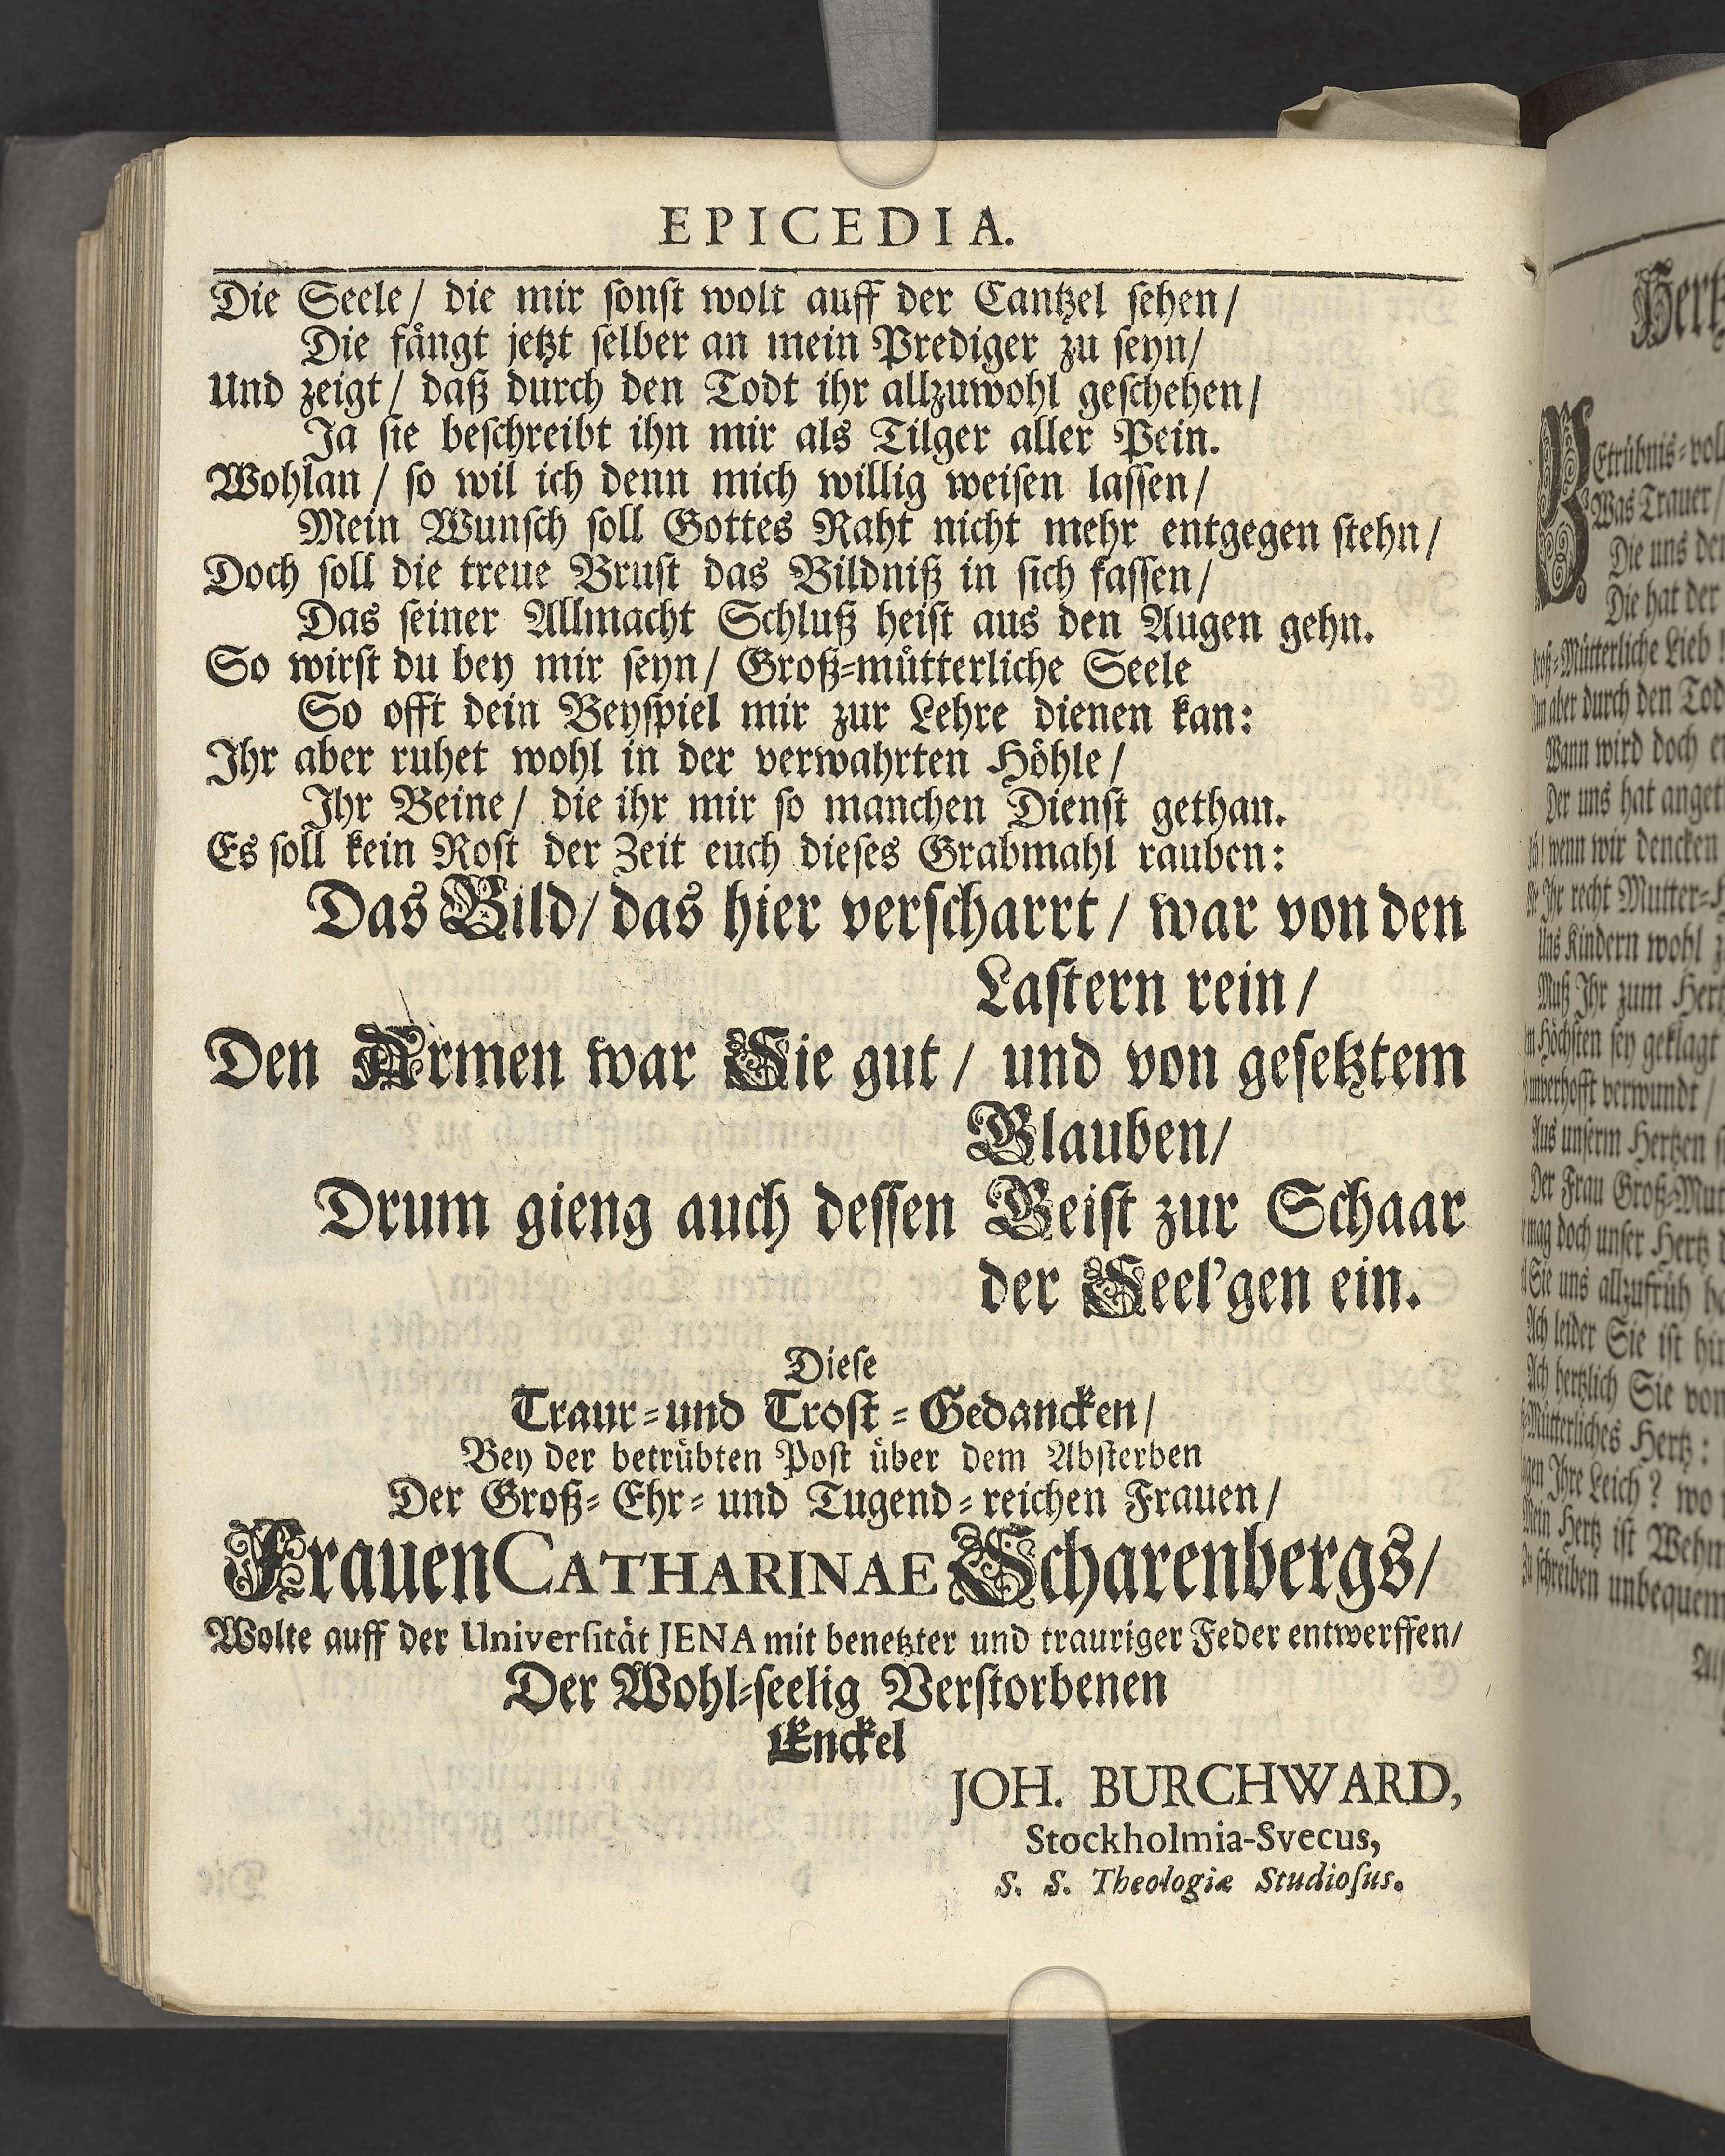 EPICEDIA.
Die Seele/ die mir sonst wolt auff der Cantzel sehen/
Die fångt jetzt selber an mein Prediger zu seyn/
Und zeigt/ daß durch den Todt ihr allzuwohl geschehen/
Ja sie beschreibt ihn mir als Tilger aller Pein.
Wohlan / so wil ich denn mich willig weisen lassen/
Mein Wunsch soll Gottes Raht nicht mehr entgegen stehn/
Doch soll die treue Brust das Bildniß in sich fassen/
Das seiner Allmacht Schluß heist aus den Augen gehn.
So wirst du bey mir seyn/ Groß-můtterliche Seele
So offt dein Beyspiel mir zur Lehre dienen kan:
Ihr aber ruhet wohl in der verwahrten Höhle/
Ihr Beine/ die ihr mir so manchen Dienst gethan.
Es soll kein Rost der Zeit euch dieses Grabmahl rauben:
Das Bild/ das hier verscharrt / war von den
Lastern rein /
Den Armen war Sie gut / und von gesetztem
Glauben/
Drum gieng auch dessen Geist zur Schaar
der Seel'gen ein.
Diese
Traur-und Trost-Gedancken/
Bey der betrůbten Post über dem Absterben
Der Groß-Ehr-und Tugend-reichen Frauen/
Frauen CATHARINAE Scharenbergs/
Wolte auff der Universität JENA mit benetzter und trauriger Feder entwerffen/
Der Wohl-seelig Verstorbenen
Enckel
JOH. BURCHWARD,
Stockholmia-Svecus,
S. S. Theologiæ Studiosus.
Hertz
Betrübnis-voll
Was Trauer/
Die uns der
Die hat der
Groß-Mütterliche Lieb!
aber durch den Tod
Wann wird doch
Der uns hat anget
wenn wir dencken
Ihr recht Mutter-
Uns Kindern wohl
Muß Ihr zum Hert
Höchsten sey geklagt
unverhofft verwundt /
Aus unserm Hertzen
Der Frau Groß-Mut
mag doch unser Hertz
Sie uns allzufrüh
Ach leider Sie ist hin
Ach hertzlich Sie von
Mütterliches Hertz:
Ihre Leich? wo
Mein Hertz ist Wehm
schreiben unbequem